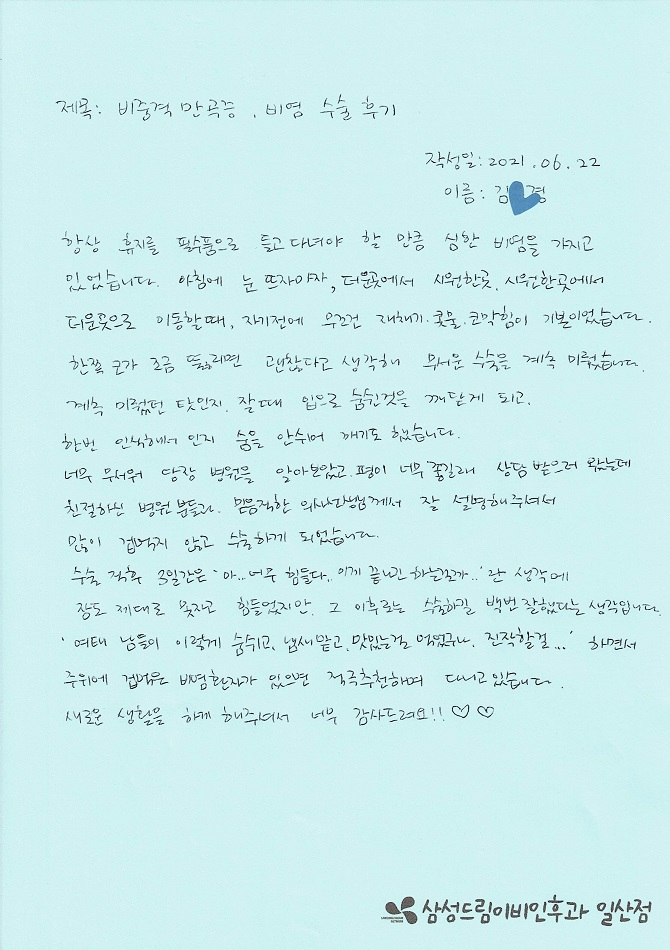 제목: 비중격 만곡증, 비염 수술 후기
작성일: 2021.06.22
이름: 김 경
항상 휴지를 필수품으로 들고 다녀야 할 만큼 심한 비염을 가지고
있었습니다. 아침에 눈 뜨자마자, 더운곳에서 시원한곳, 시원한곳에서
더운곳으로 이동할때, 자기전에 무조건 재채기. 콧물. 코막힘이 기본이었습니다.
한쪽 코가 조금 뚫리면 괜찮다고 생각해 무서운 수술을 계속 미뤘습니다.
계속 미뤘던 탓인지. 잘때 입으로 숨쉰것을 깨닫게 되고,
한번 인식해서 인지 숨을 안쉬어 깨기도 했습니다.
너무 무서워 당장 병원을 알아보았고. 평이 너무 좋길래 상담 받으러 왔는데
친절하신 병원 분들과. 믿음직한 의사선생님께서 잘 설명해주셔서
많이 겁먹지 않고 수술하게 되었습니다.
수술 직후 3일간은 '아..너무 힘들다.. 이게 끝나긴 하는걸까..' 란 생각에
잠도 제대로 못자고 힘들었지만. 그 이후로는 수술하길 백번 잘했다는 생각입니다.
'여태 남들이 이렇게 숨쉬고, 냄새맡고, 맛있는걸 먹었구나. 진작할걸...' 하면서
주위에 겁먹은 비염환자가 있으면 적극추천하며 다니고 있습니다.
새로운 생활을 하게 해주셔서 너무 감사드려요!! ♡ ♡
삼성드림이비인후과 일산점